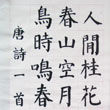 人閒桂花
春山空月
鳥時鳴春
唐詩一首